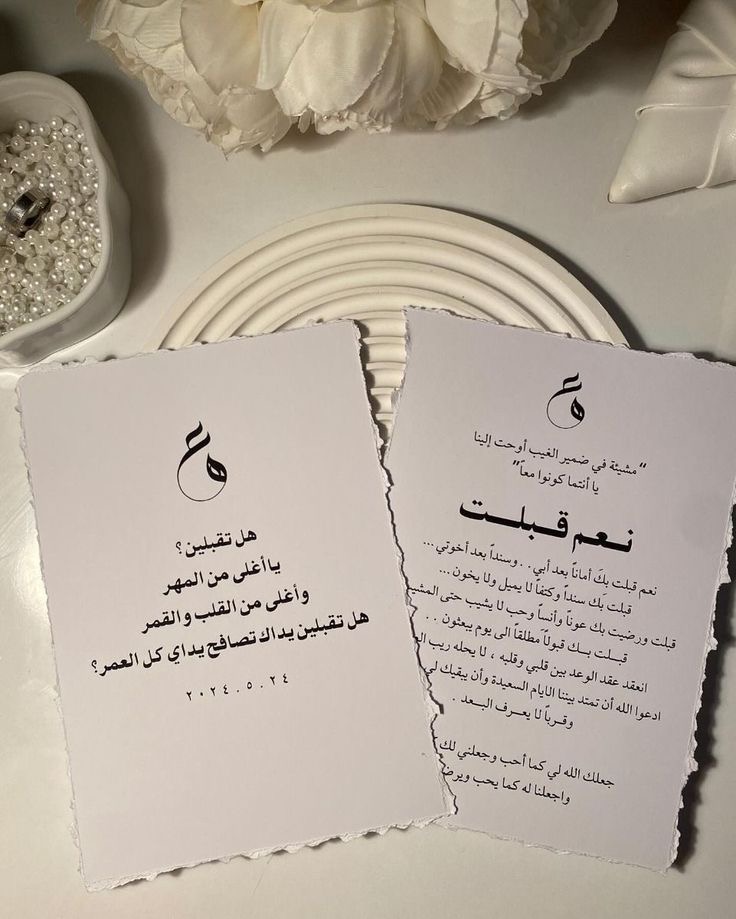 هل تقبلين؟
يا أغلى من المهر
وأغلى من القلب والقمر
هل تقبلين يداك تصافح يداي كل العمر؟
٢٠٢٤.٥.٢٤
"مشيئة في ضمير الغيب أوحت إلينا
يا أنتما كونوا معاً"
نعم قبلت
نعم قبلت بكَ أماناً بعد أبي.. وسنداً بعد أخوتي...
قبلت بَك سنداً وكتفاً لا يميل ولا يخون...
قبلت ورضيت بك عوناً وأنساً وحب لا يشيب حتى المشيب
قبلت بك قبولاً مطلقاً الى يوم يبعثون..
انعقد عقد الوعد بين قلبي وقلبه ، لا يحله ريب
ادعوا الله أن تمتد بيننا الايام السعيدة وأن يبقيك لي
وقرباً لا يعرف البعد .
جعلك الله لي كما أحب وجعلني لك
واجعلنا له كما يحب ويرضى